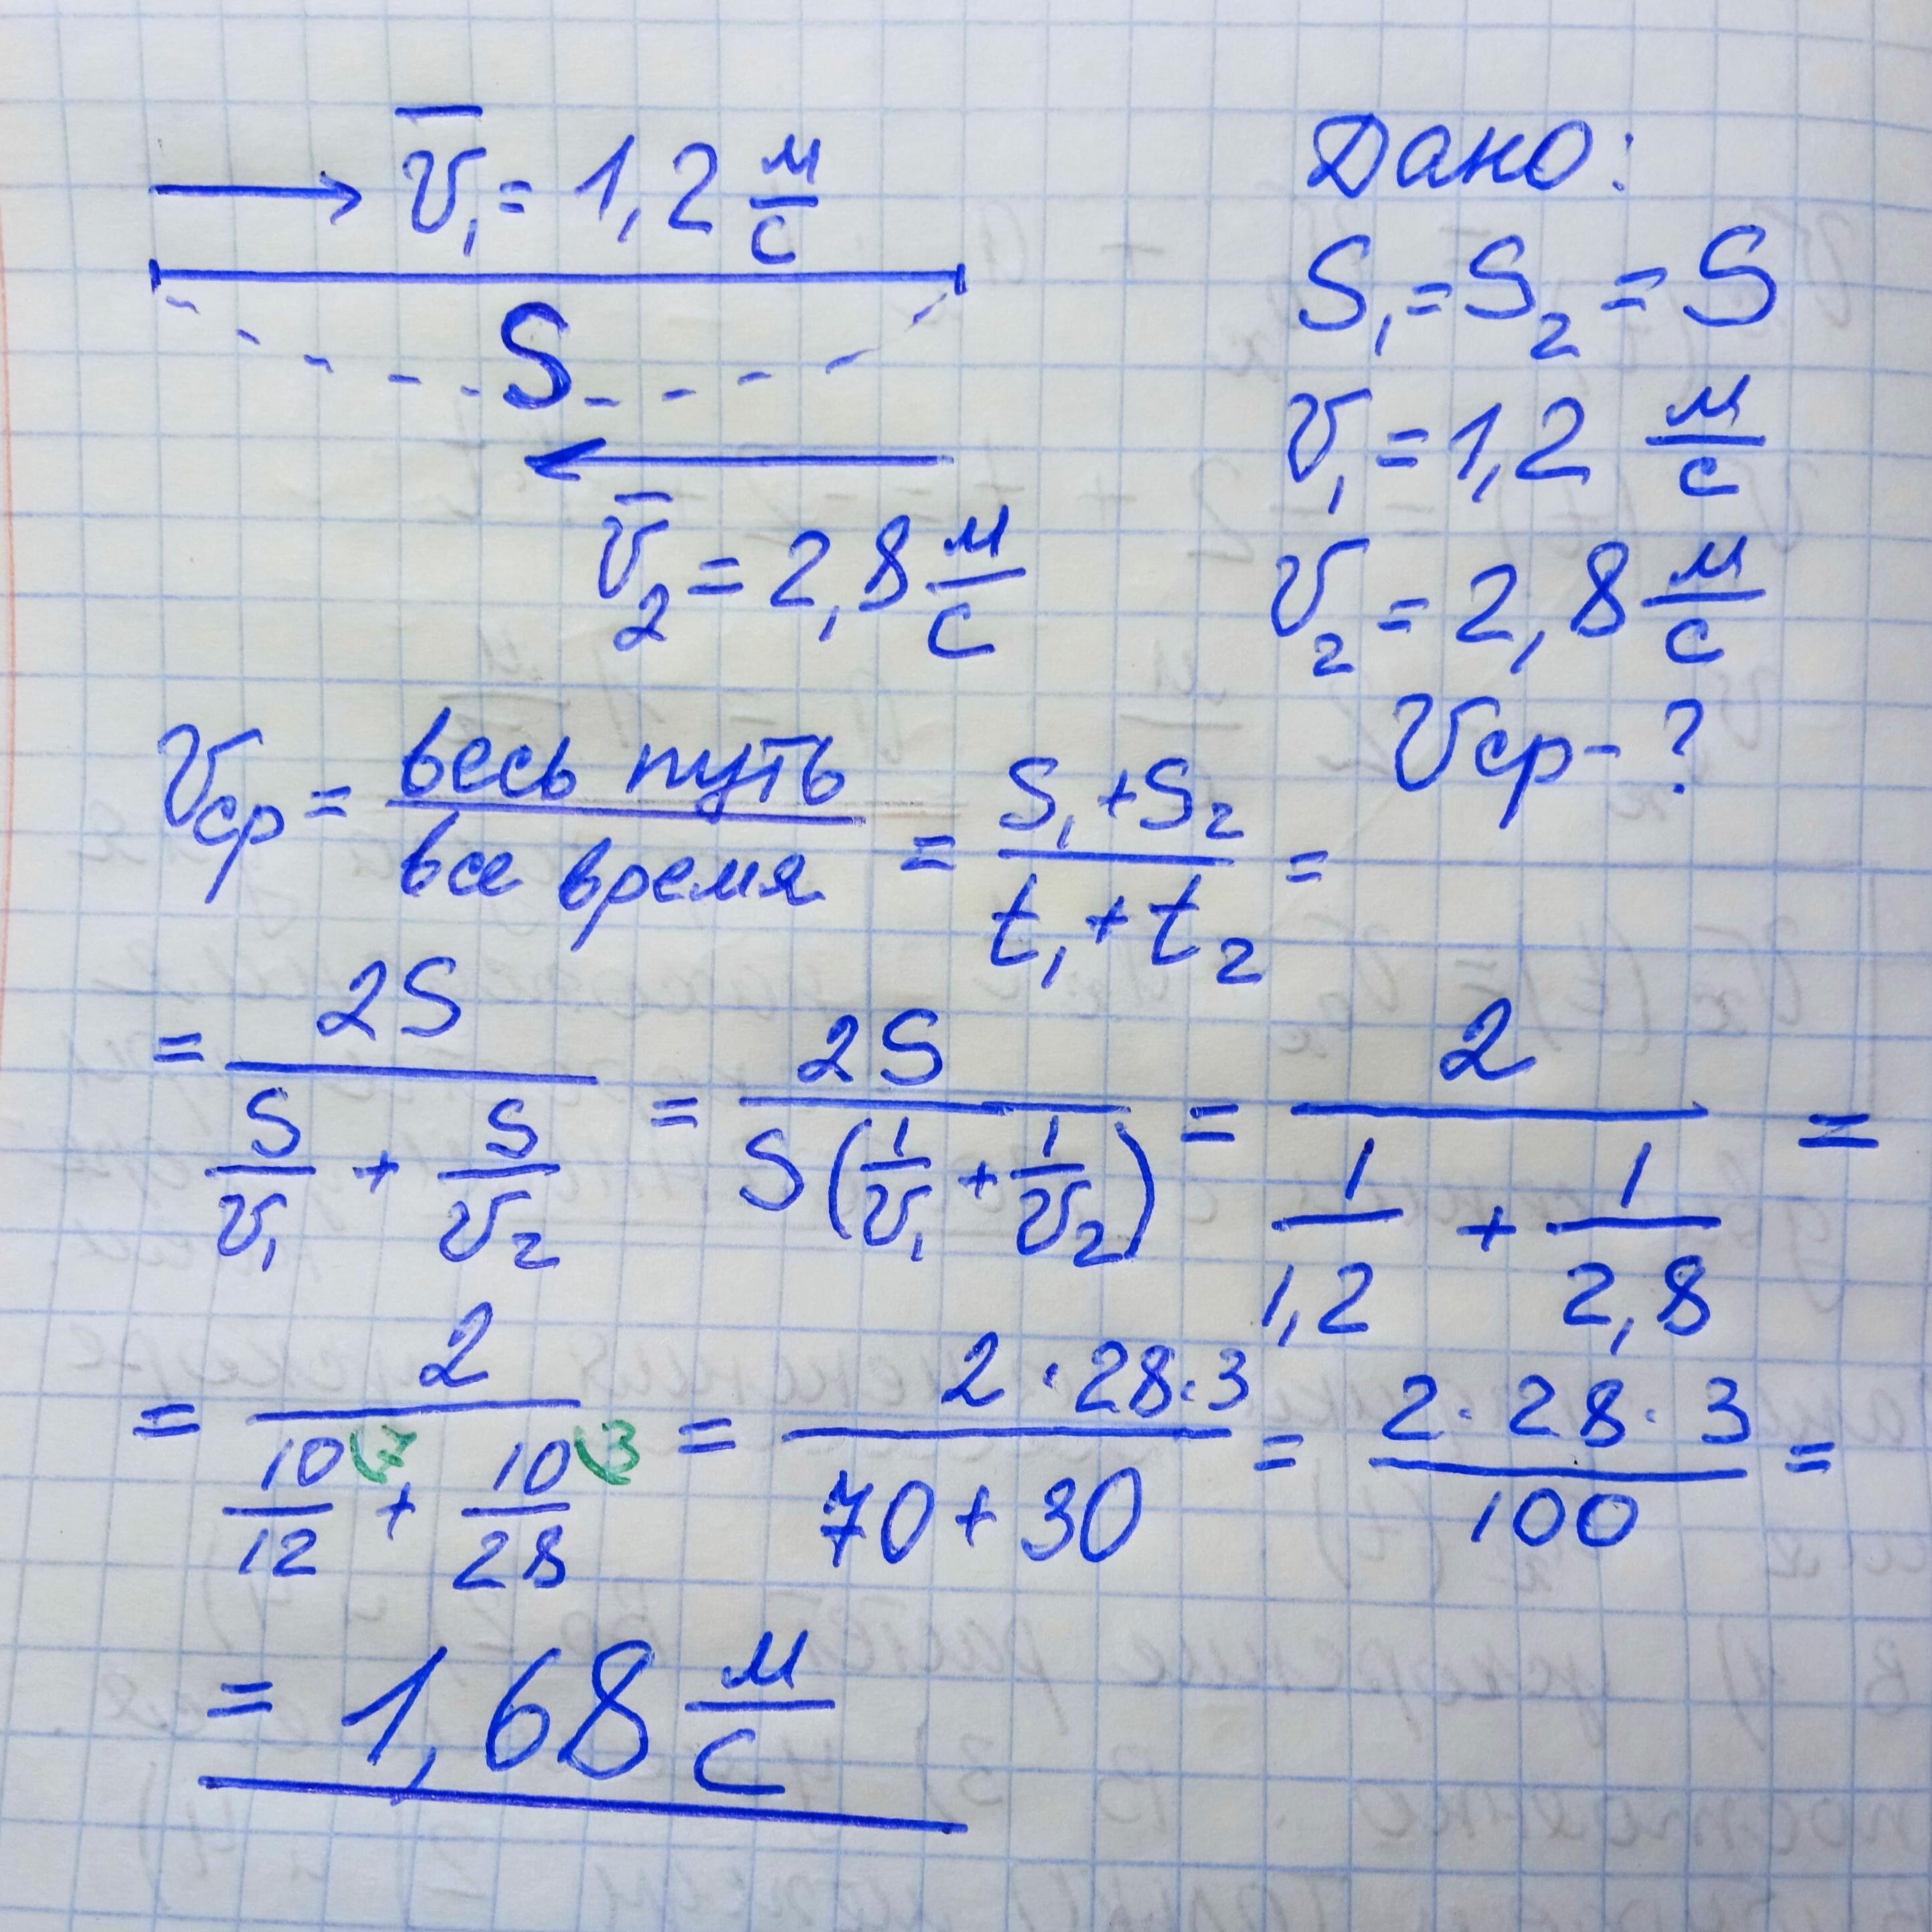 v̄₁ = 1,2 м/с
S
v̄₂ = 2,8 м/с
Дано:
S₁ = S₂ = S
v₁ = 1,2 м/с
v₂ = 2,8 м/с
vср - ?
vср = весь путь / все время = (S₁ + S₂) / (t₁ + t₂) =
= 2S / (S/v₁ + S/v₂) = 2S / (S(1/v₁ + 1/v₂)) = 2 / (1/1,2 + 1/2,8) =
= 2 / (10/12 (7 + 10/28 (3) = 2·28·3 / (70 + 30) = 2·28·3 / 100 =
= 1,68 м/с